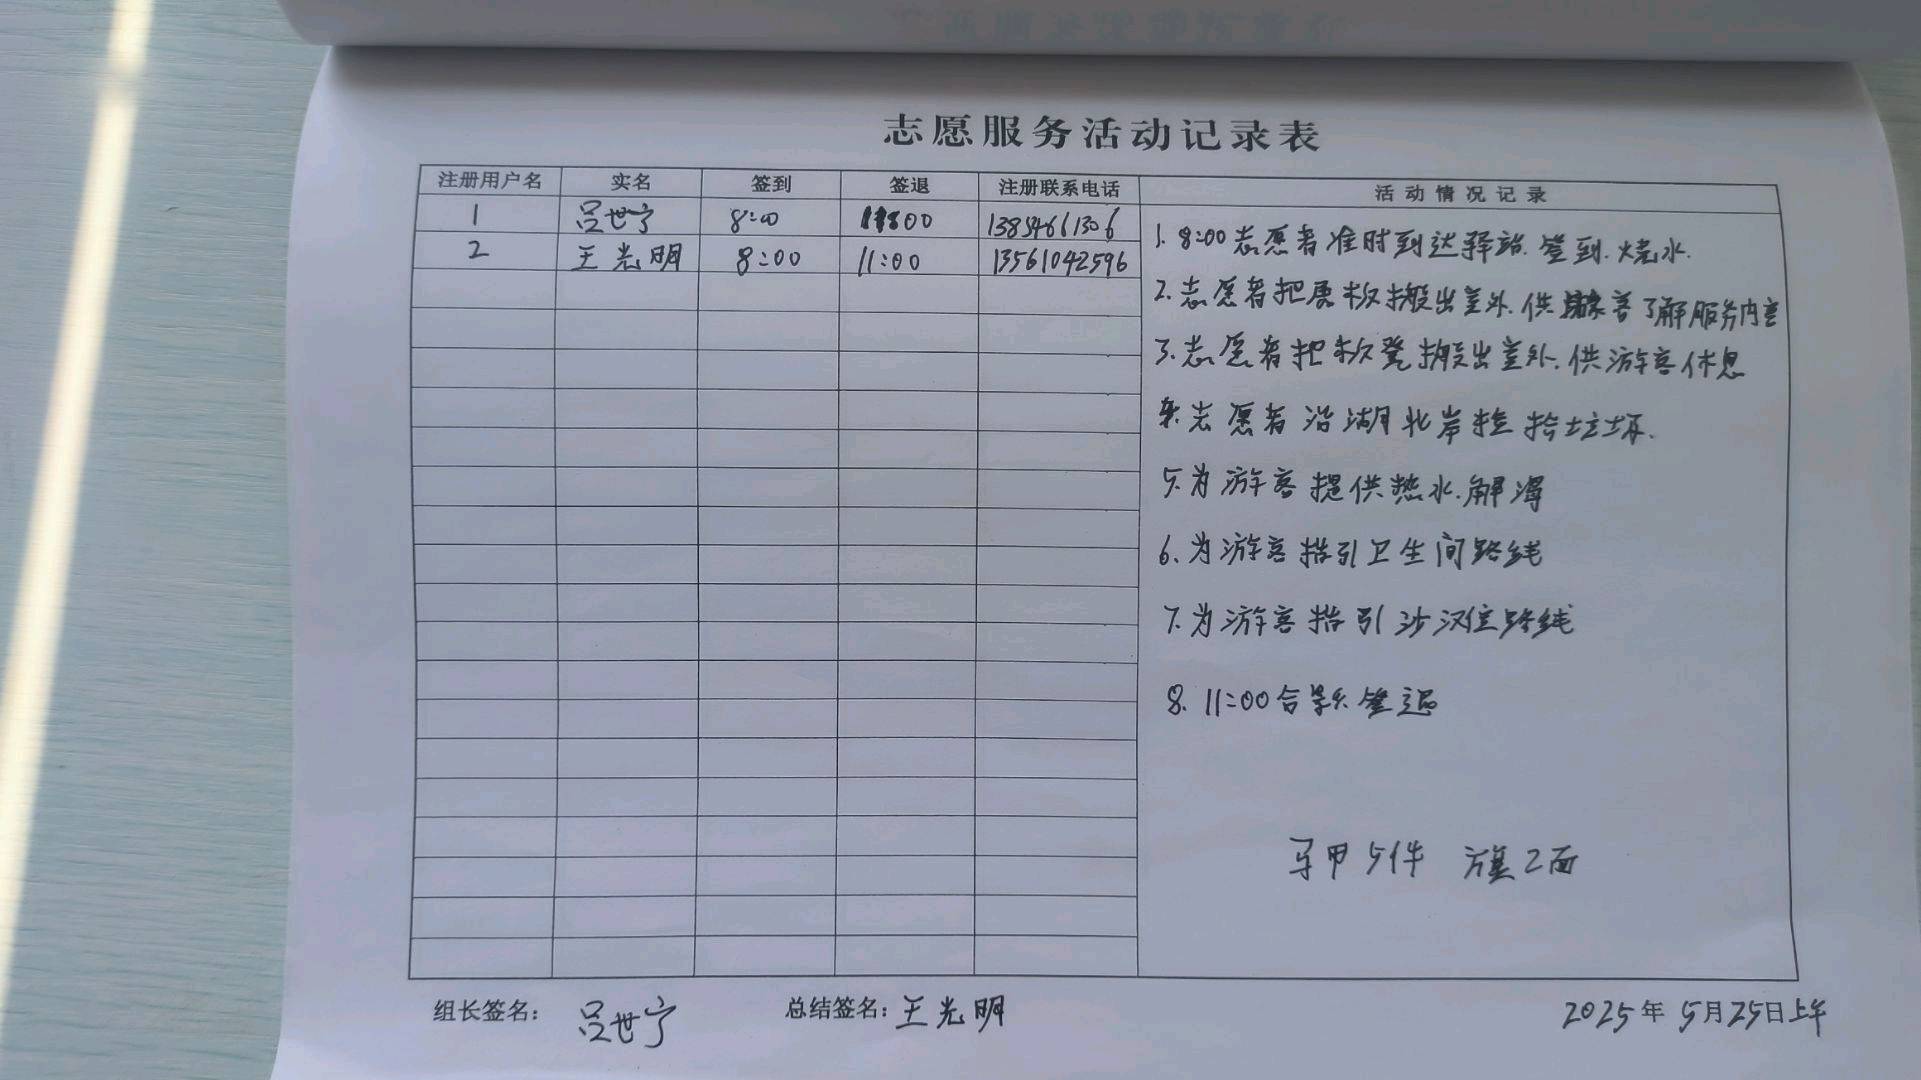 志愿服务活动记录表
注册用户名 实名 签到 签退 注册联系电话 活动情况记录
1 吕世宁 8:00 11:00 13854661306
2 王光明 8:00 11:00 13561042596
1. 8:00志愿者准时到达驿站.签到.烧水.
2.志愿者把展板搬出室外.供游客了解服务内容
3.志愿者把板凳搬出室外.供游客休息
4.志愿者沿湖北岸捡拾垃圾.
5.为游客提供热水.解渴
6.为游客指引卫生间路线
7.为游客指引沙汉位路线
8. 11:00合影签退
马甲5件 旗2面
组长签名: 吕世宁 总结签名: 王光明 2025年5月25日上午